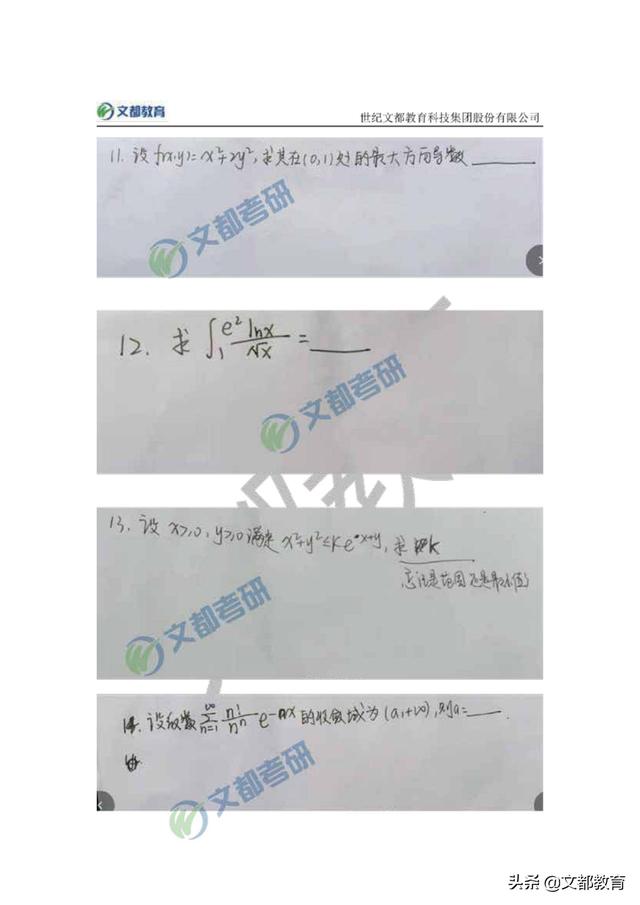 文都教育
世纪文都教育科技集团股份有限公司
11. 设 f(x,y)=x²+2y², 求其在(0,1)处的最大方向导数 ______
文都考研
12. 求 ∫₁^{e²} lnx/√x = ______
文都考研
13. 设 x≥0, y≥0 满足 x²+y²≤k e^{x+y}, 求 k
忘记是范围还是最小值了
文都考研
14. 设级数 ∑_{n=1}^{∞} n!/nⁿ e^{-nx} 的收敛域为 (a,+∞), 则a=____.
文都考研
头条 @文都教育